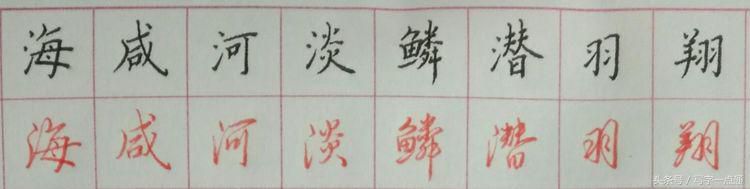 海咸河淡鳞潜羽翔
海咸河淡鳞潜羽翔
头条号/写字一点通